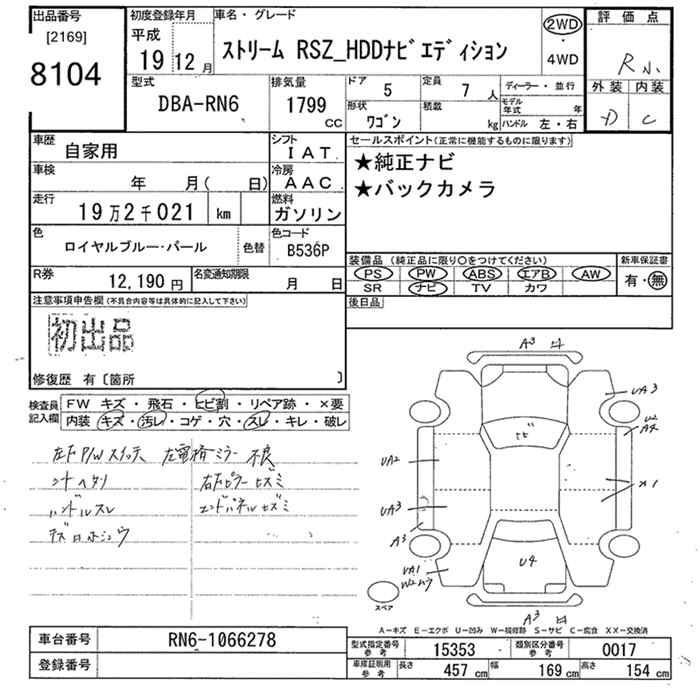 出品番号
[2169]
8104
初度登録年月
平成
19 12 月
車名・グレード
ストリーム RSZ_HDDナビエディション
2WD
・
4WD
評価点
R
外装 内装
D C
型式
DBA-RN6
排気量
1799
CC
ドア
5
定員
7 人
形状
ワゴン
積載
kg
ディーラー・並行
モデル年式 年
ハンドル 左・右
車歴
自家用
シフト
IAT
車検
年 月( 日)
冷房
AAC
走行
19万2千021 km
燃料
ガソリン
色
ロイヤルブルー・パール
色替
色コード
B536P
R券
12,190 円
名変通知期限
月 日
セールスポイント(正常に機能するものに限ります)
★純正ナビ
★バックカメラ
装備品 (純正品に限り〇をつけてください)
PS PW ABS エアB AW
SR ナビ TV カワ
新車保証書
有・無
後日品
注意事項申告欄(不具合内容等は具体的に記入して下さい)
初出品
修復歴 有〔箇所 〕
検査員記入欄
FW キズ・飛石・ヒビ割・リペア跡・×要
内装 キズ・汚レ・コゲ・穴・スレ・キレ・破レ
左下P/Wスイッチ 左電格ミラー不良
シートヘタリ 右下ピラーキズミ
ハンドルスレ エンドパネルキズミ
A3
UA3
U2
A4
ヒビ
UA2
UA3
A3
×1
U4
UA1
A3
スペア
A-キズ E-エクボ U-凹み W-補修跡 S-サビ C-腐食 XX-交換済
車台番号
RN6-1066278
登録番号
型式指定番号 参考
15353
類別区分番号 参考
0017
車庫証明用 参考
長さ 457 cm 幅 169 cm 高さ 154 cm